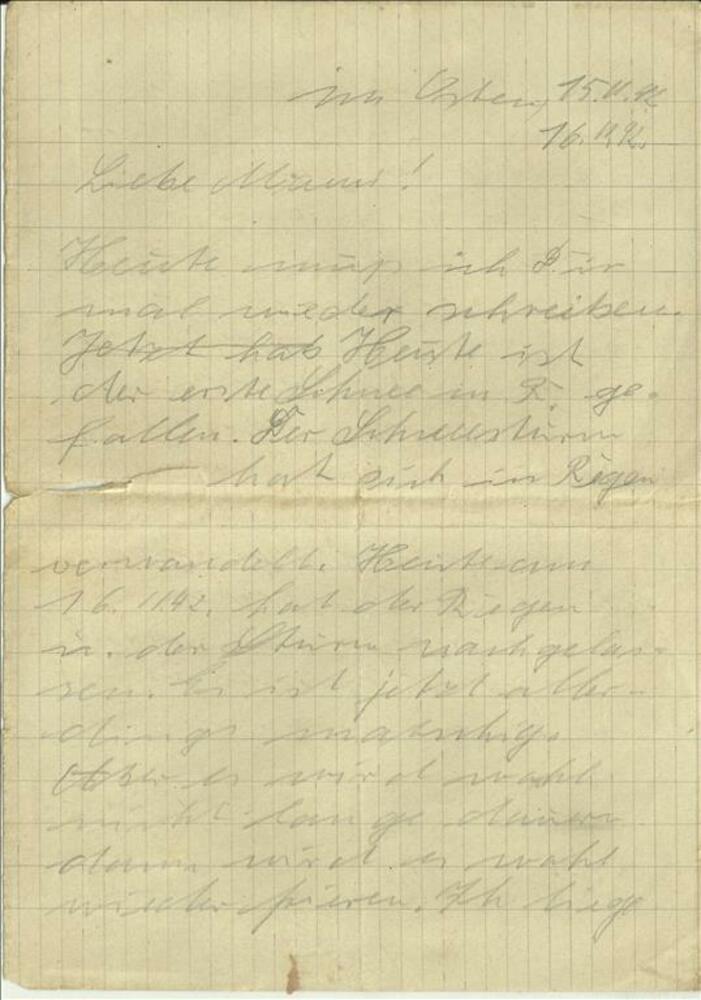 im Osten, 15.11.42
16.11.42.
Liebe Mumi!
Heute muß ich Dir
mal wieder schreiben.
Jetzt hab Heute ist
der erste Schnee in R. ge-
fallen. Der Schneesturm
hat sich in Regen
verwandelt. Heute am
16.11.42. hat der Regen
u. der Sturm nachgelas-
sen. Es ist jetzt aller-
dings matschig.
Aber es wird wohl
nicht lange dauern
dann wird es wohl
wieder frieren. Ich liege